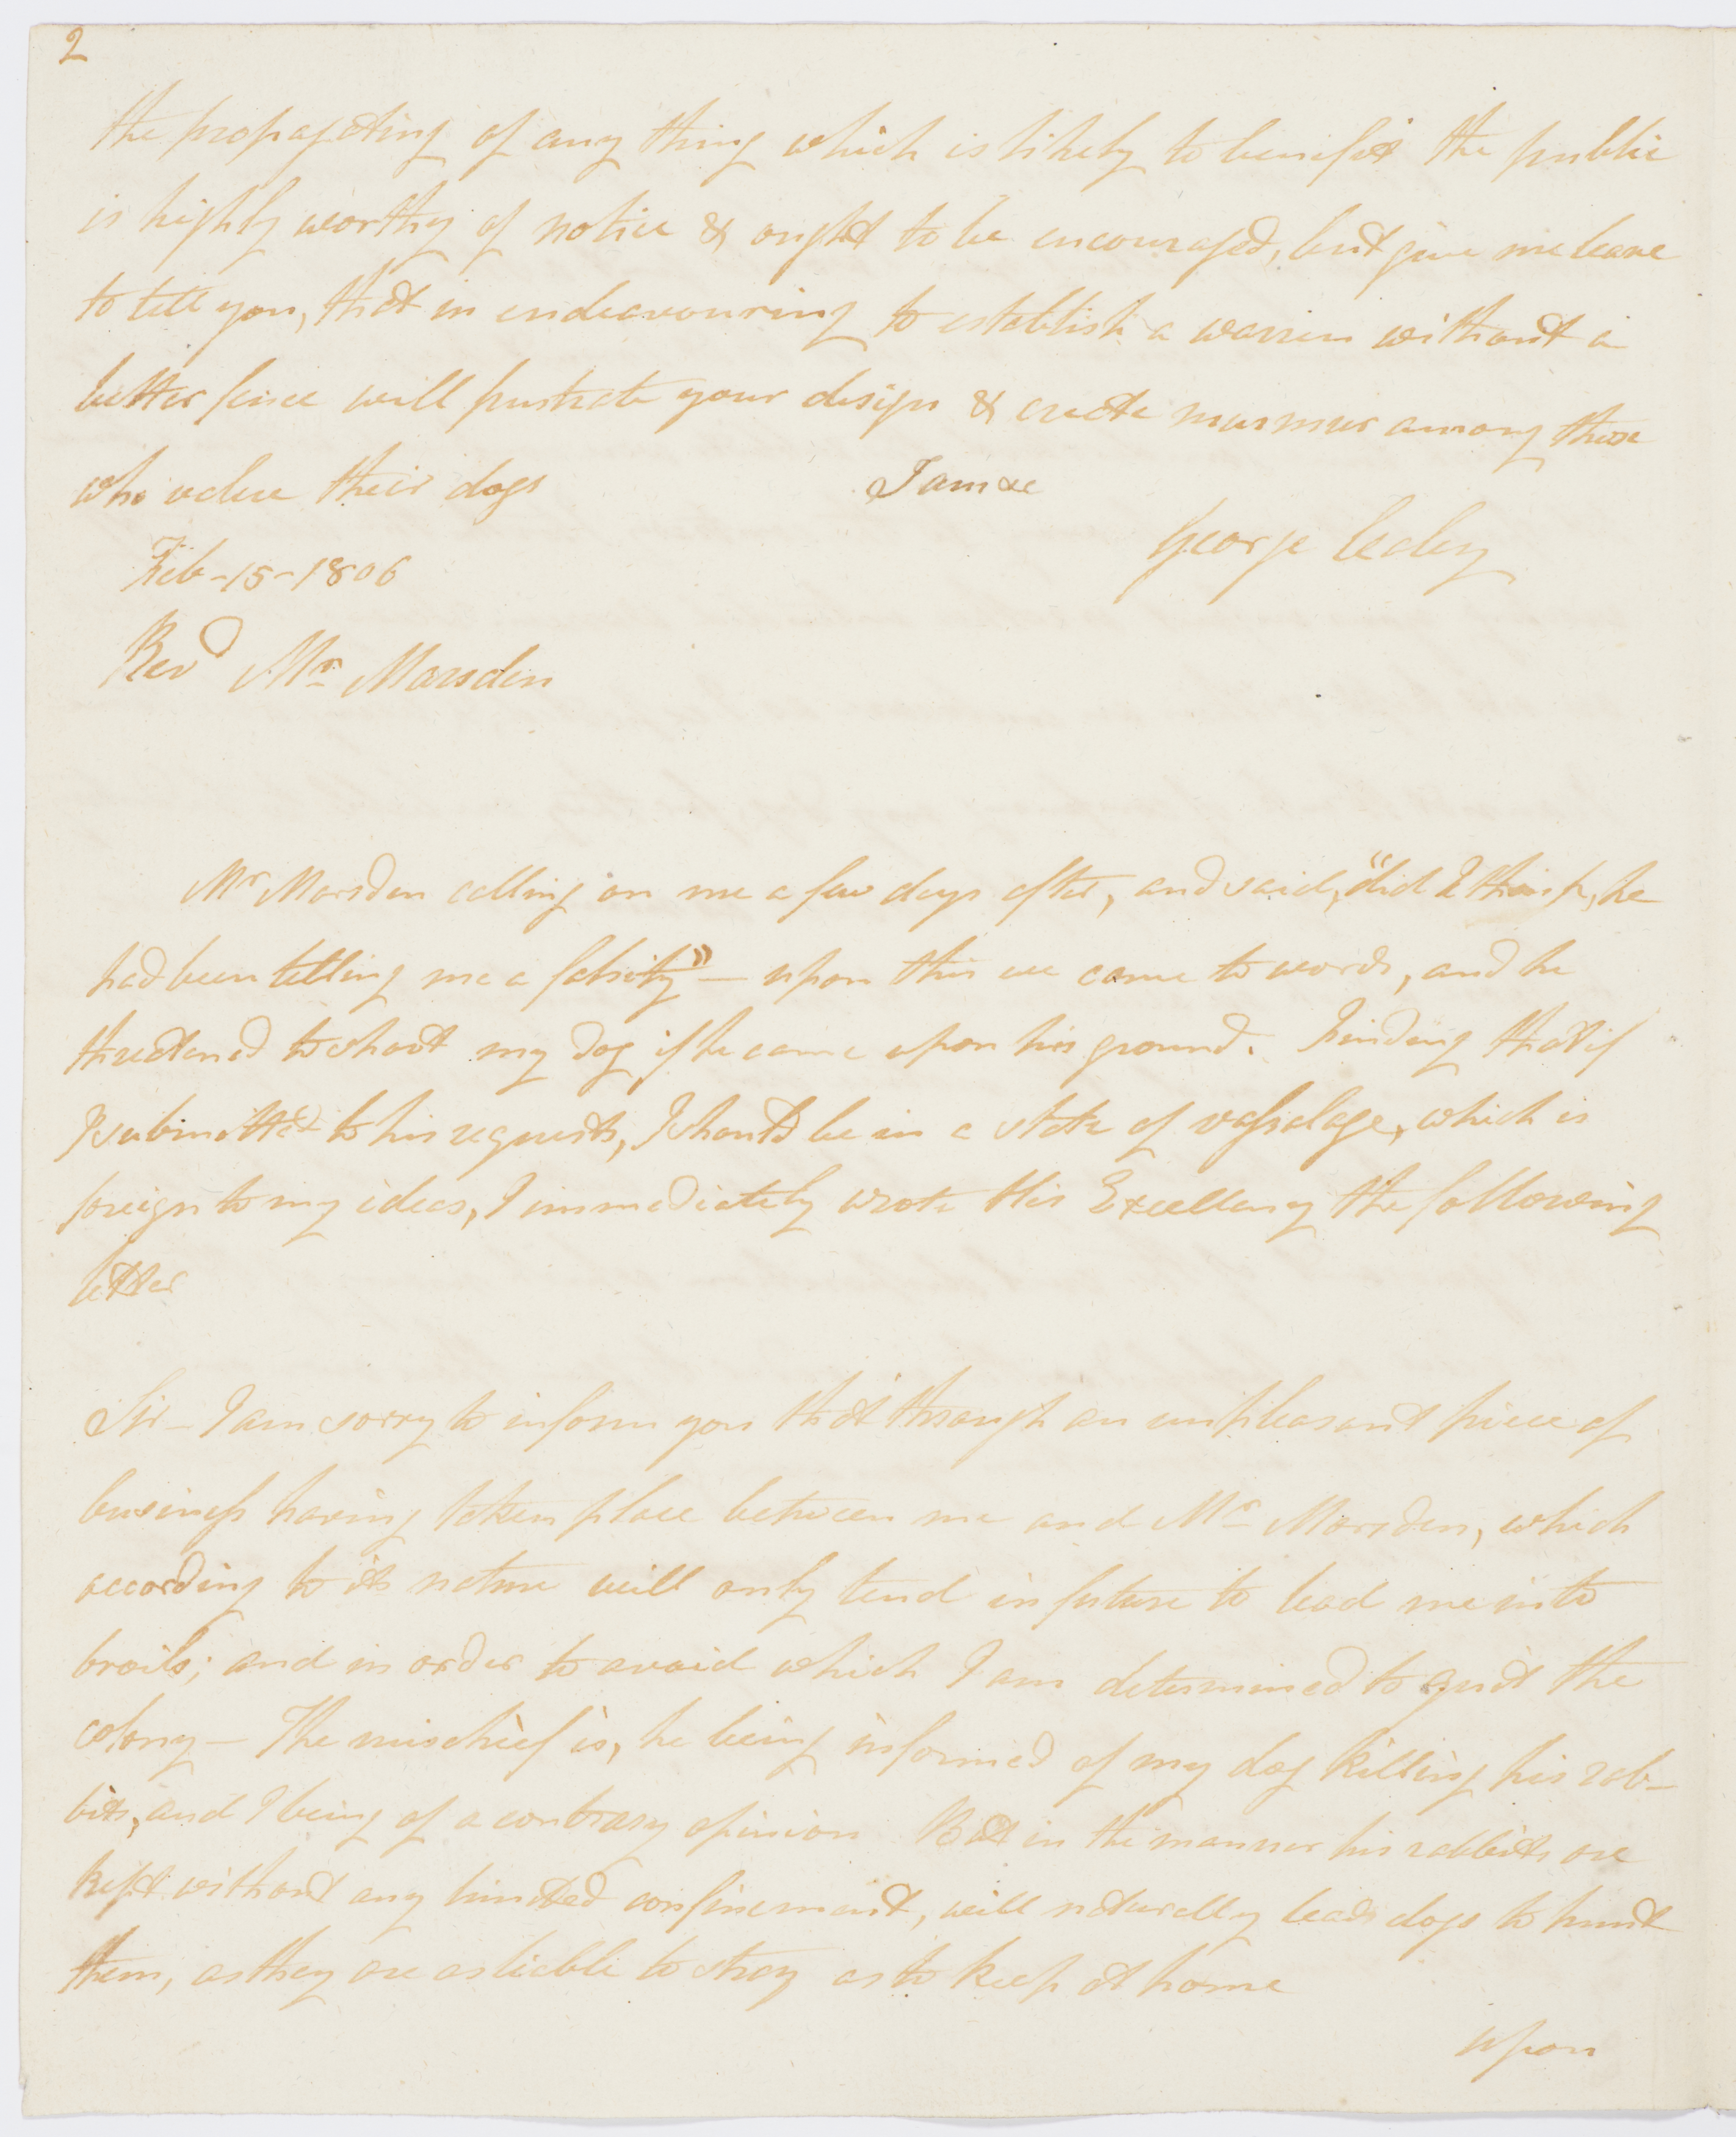 2
the propagating of any thing which is likely to benefit the public
is highly worthy of notice & ought to be encouraged, but give me leave
to tell you, that in endeavouring to establish a warren without a
better fence will frustrate your design & create murmur among those
who value their dogs I am &c
George Caley
Feb - 15 - 1806
Revd Mr Marsden
Mr Marsden calling on me a few days after, and said, "did I think, he
had been telling me a falsity" — upon this we came to words, and he
threatened to shoot my dog if he came upon his ground. Finding that if
I submitted to his requests, I should be in a state of vassalage, which is
foreign to my ideas, I immediately wrote His Excellency the following
letter
Sir — I am sorry to inform you that through an unpleasant piece of
business having taken place between me and Mr Marsden, which
according to its nature will only tend in future to lead me into
broils; and in order to avoid which I am determined to quit the
colony — The mischief is, he being informed of my dog killing his rab-
bits, and I being of a contrary opinion But in the manner his rabbits are
kept without any limited confinement, will naturally lead dogs to hunt
them, as they are as liable to stray as to keep at home
upon